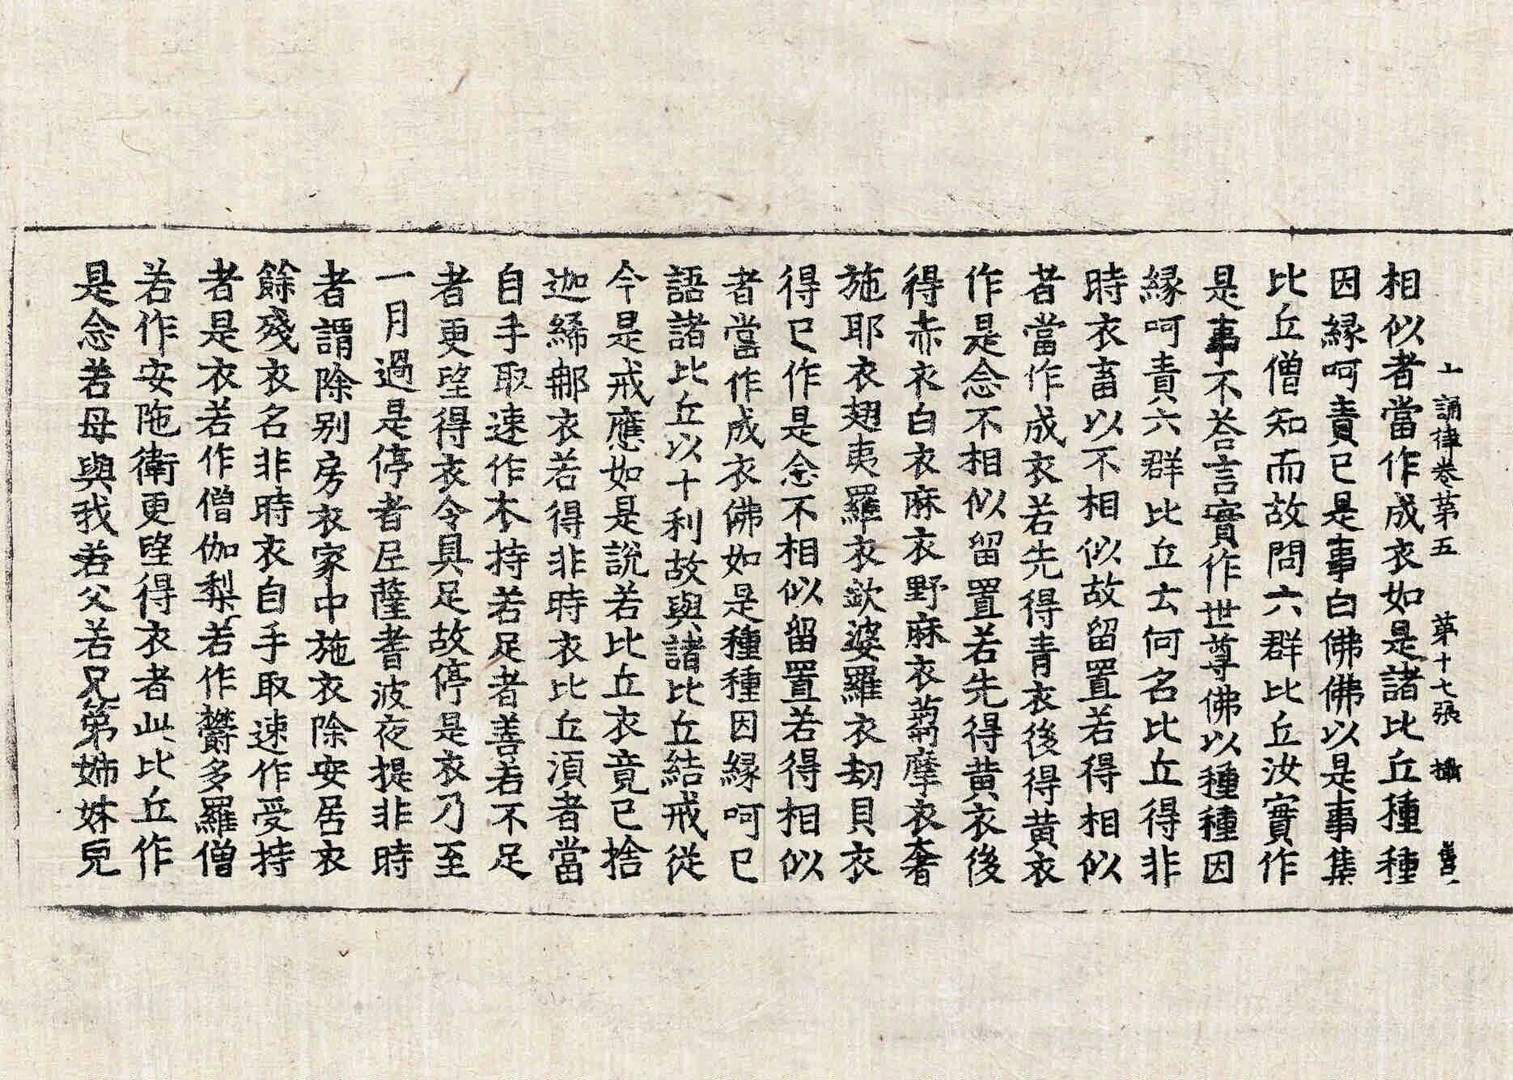 誦律卷第五　第十七張　攝
相似者當作成衣如是諸比丘種種
因緣呵責已是事白佛佛以是事集
比丘僧知而故問六群比丘汝實作
是事不荅言實作世尊佛以種種因
緣呵責六群比丘云何名比丘得非
時衣畜以不相似故留置若得相似
者當作成衣若先得青衣後得黃衣
作是念不相似留置若先得黃衣後
得赤衣白衣麻衣野麻衣蒭摩衣奢
施耶衣翅夷羅衣欽婆羅衣劫貝衣
得已作是念不相似留置若得相似
者當作成衣佛如是種種因緣呵已
語諸比丘以十利故與諸比丘結戒從
今是戒應如是說若比丘衣竟已捨
迦絺那衣若得非時衣比丘湏者當
自手取速作衣持若足者善若不足
者更望得衣令具足故停是衣乃至
一月過是停者尼薩耆波夜提非時
者謂除别房衣家中施衣除安居衣
餘殘衣名非時衣自手取速作受持
者是衣若作僧伽梨若作欝多羅僧
若作安陁衛更望得衣者此比丘作
是念若母與我若父若兄第姊妹皃